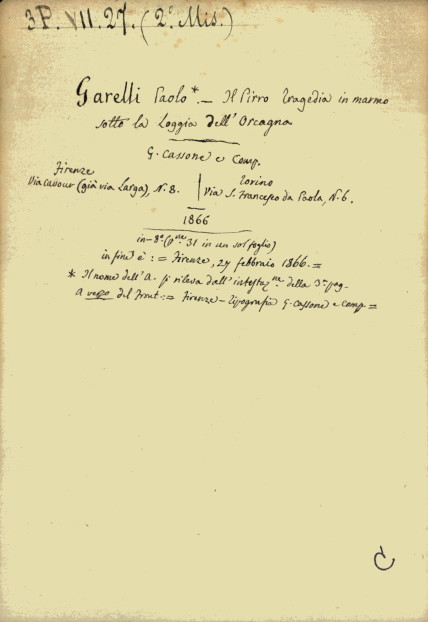 3P. VII. 27. (2.° Mis.)
Garelli Paolo*. — Il Pirro tragedia in marmo
sotto la Loggia dell'Orcagna
G. Cassone e Comp.
Firenze
Via Cavour (già via Larga), N. 8.
Torino
Via S. Francesco da Paola, N. 6.
1866
in-8.° (p.ne 31 in un sol foglio)
in fine è : = Firenze, 27 febbraio 1866. =
* Il nome dell'A. si rileva dall'intestaz.ne della 3.a pag.
A vergo del Front. : = Firenze — Tipografia G. Cassone e comp =
C